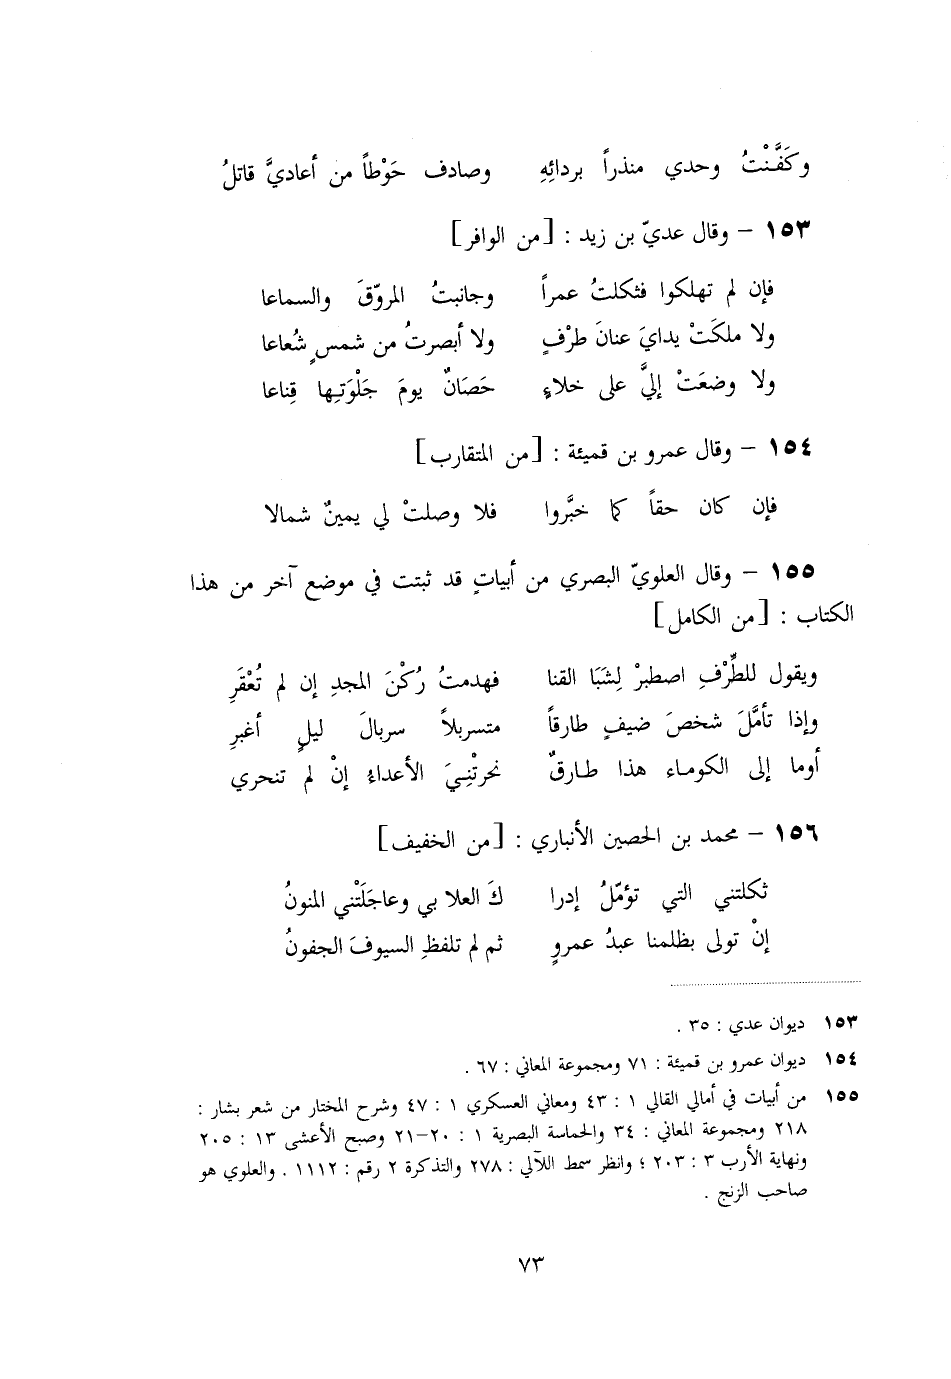 وكَفَّنْتُ وحدي منذراً بردائِهِ وصادف حَوْطاً من أعاديَّ قاتلُ
١٥٣ – وقال عديّ بن زيد : [من الوافر]
فإن لم تهلكوا فثكلتُ عمراً وجانبتُ المروّقَ والسماعا
ولا ملكَتْ يدايَ عنانَ طرْفٍ ولا أبصرتُ من شمسٍ شُعاعا
ولا وضعَتْ إليَّ على خلاءٍ حَصَانٌ يومَ جَلْوَتِها قِناعا
١٥٤ – وقال عمرو بن قميئة : [من المتقارب]
فإن كان حقاً كما خبَّروا فلا وصلتْ لي يمينٌ شمالا
١٥٥ – وقال العلويّ البصري من أبياتٍ قد ثبتت في موضع آخر من هذا
الكتاب : [من الكامل]
ويقول للطِّرْفِ اصطبرْ لِشَبَا القنا فهدمتُ رُكْنَ المجدِ إن لم تُعْقَرِ
وإذا تأمَّلَ شخصَ ضيفٍ طارقاً متسربلاً سربالَ ليلٍ أغبرِ
أوما إلى الكوماء هذا طارقٌ نحرتْنِيَ الأعداءُ إنْ لم تنحري
١٥٦ – محمد بن الحصين الأنباري : [من الخفيف]
ثكلتني التي تؤمّلُ إدرا كَ العلا بي وعاجَلَتْني المنونُ
إنْ تولى بظلمنا عبدُ عمروٍ ثم لم تلفظِ السيوفَ الجفونُ
١٥٣ ديوان عدي : ٣٥ .
١٥٤ ديوان عمرو بن قميئة : ٧١ ومجموعة المعاني : ٦٧ .
١٥٥ من أبيات في أمالي القالي ١ : ٤٣ ومعاني العسكري ١ : ٤٧ وشرح المختار من شعر بشار :
٢١٨ ومجموعة المعاني : ٣٤ والحماسة البصرية ١ : ٢٠–٢١ وصبح الأعشى ١٣ : ٢٠٥
ونهاية الأرب ٣ : ٢٠٣ ؛ وانظر سمط اللآلي : ٢٧٨ والتذكرة ٢ رقم : ١١١٢ . والعلوي هو
صاحب الزنج .
٧٣